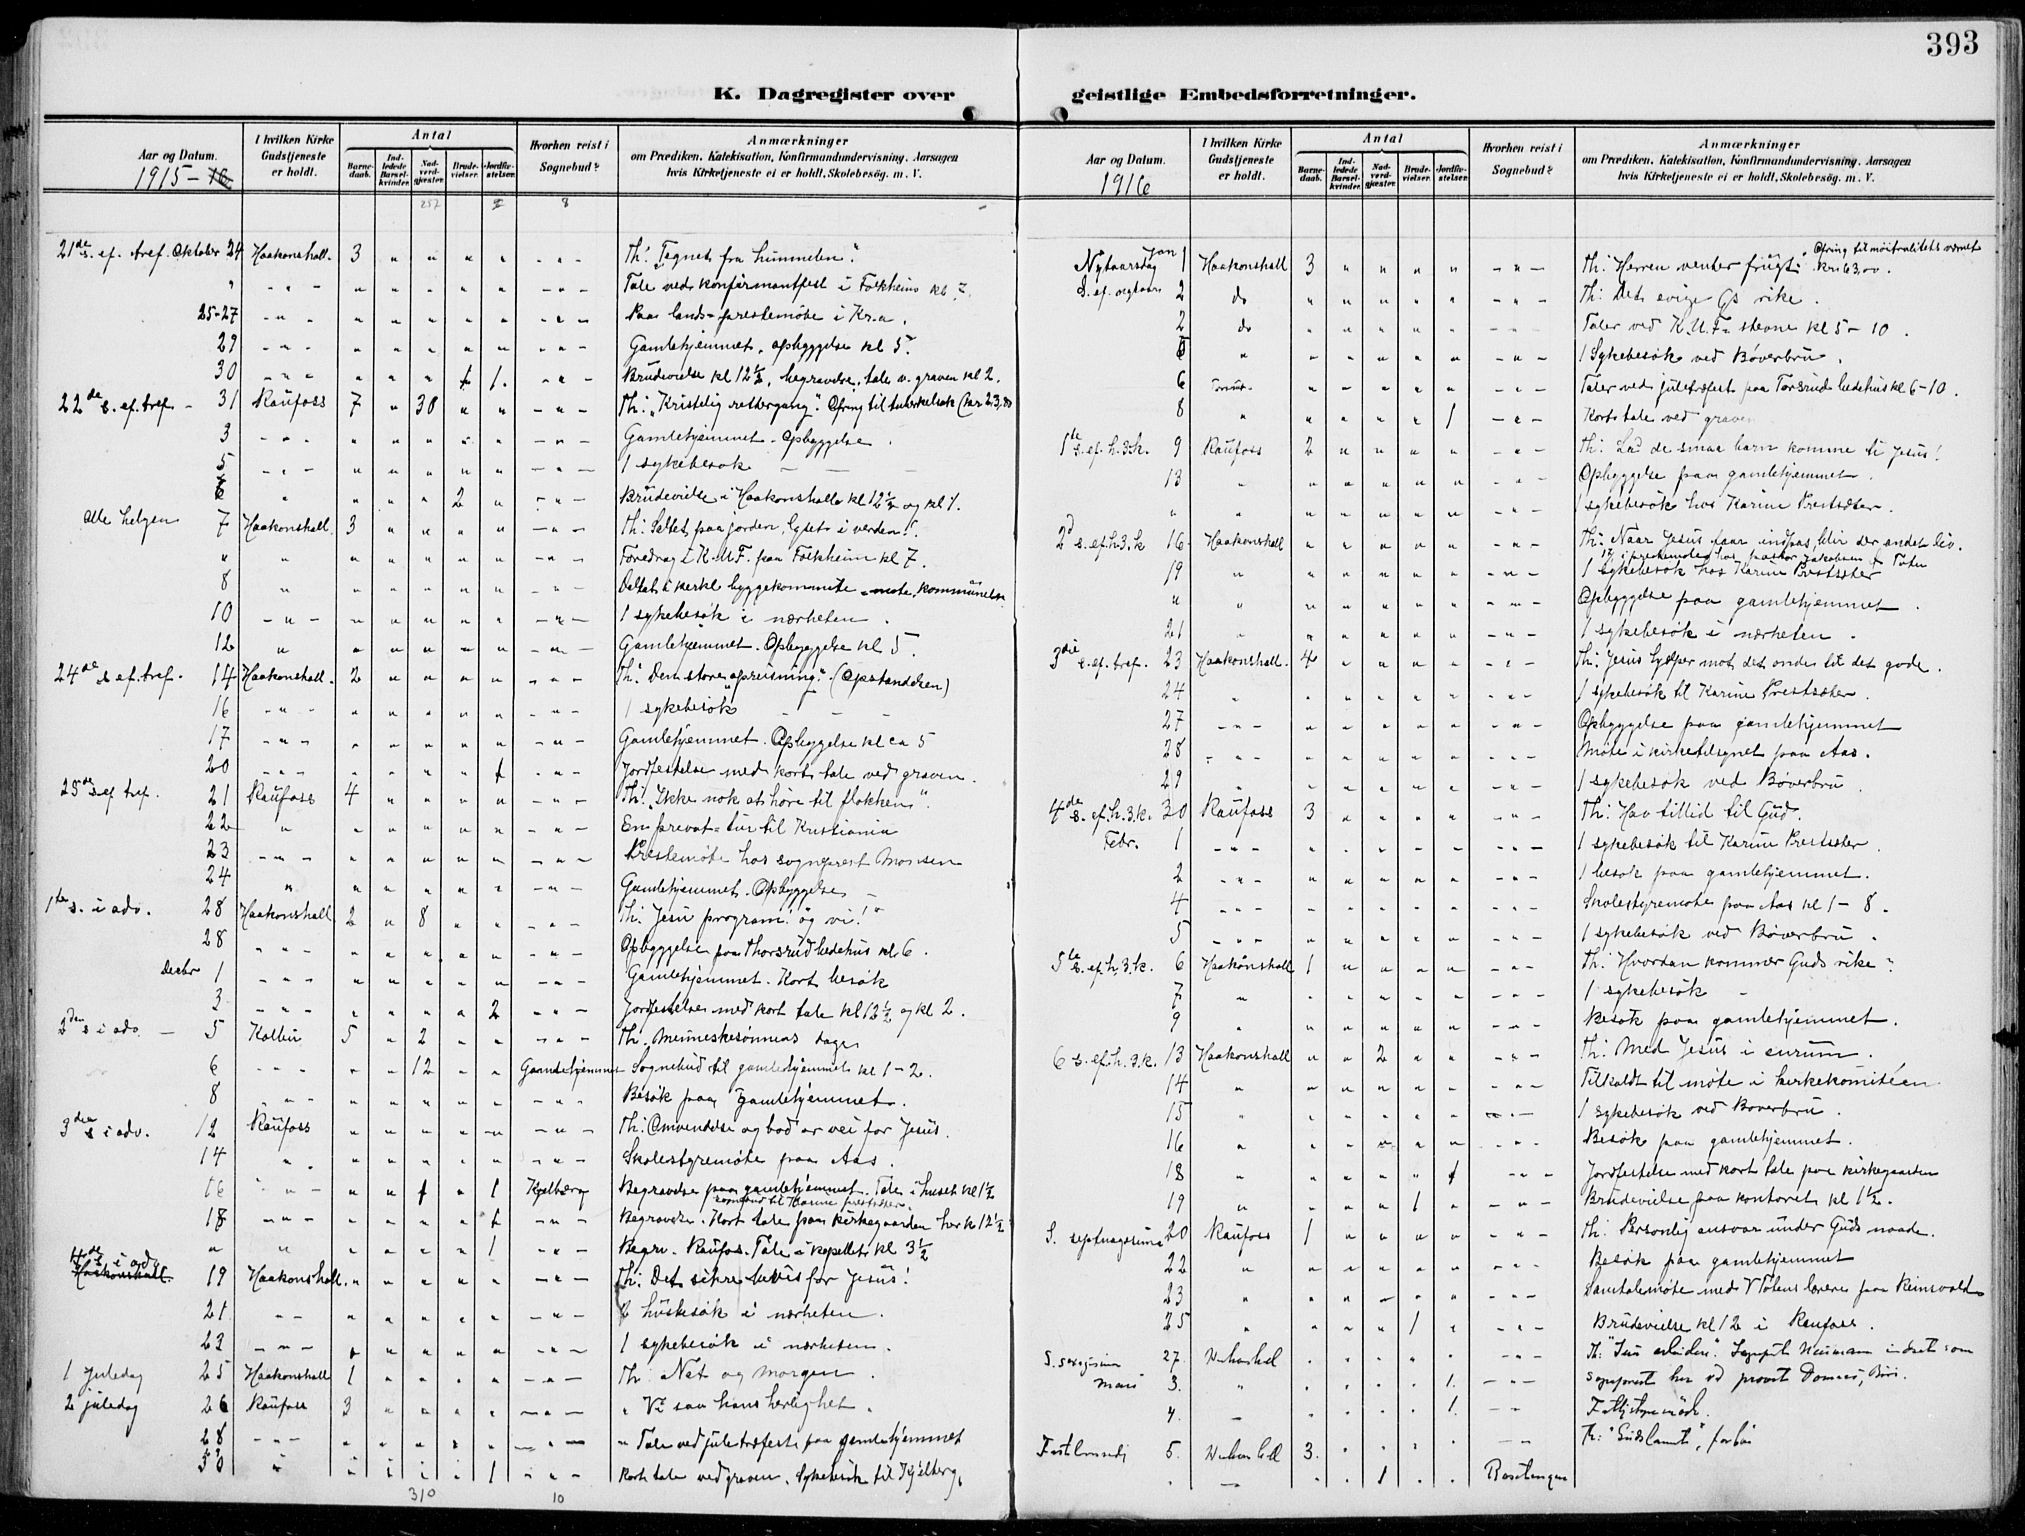 393
K. Dagregister over geistlige Embedsforretninger.
Aar og Datum. 1915-16.
I hvilken Kirke Gudstjeneste er holdt.
Antal
Barnedaab. Indledede Barselkvinder. Nadverdgjæster. Brudevielser. Jordfæstelser.
Hvorhen reist i Sognebud?
Anmærkninger
om Prædiken, Katekisation, Konfirmandundervisning, Aarsagen
hvis Kirketjeneste ei er holdt, Skolebesøg. m. V.
257 8
21de s. ef. tref. Oktober 24 Haakonshall. 3 " " " " - " - Th: "Tegnet fra himmelen".
" - " - " " " " " - " - Tale ved konfirmantfest i Folkheim kl 7.
25-27 - " - " " " " " - " - Paa lands-prestemöte i Kr.a.
29 - " - " " " " " - " - Gamlehjemmet, opbyggelse kl 5.
30 - " - " " " 1 1. - " - Brudevielse kl 12 1/2, begravelse, tale v. graven kl 2.
22de s. ef. tref. - 31 Raufoss 7 " 30 " " - " - Th: "Kristelig rettergang". Ofring til tuberkelsak (kr 23,80
3 - " - " " " " " - " - Gamlehjemmet - Opbyggelse.
5 - " - " " " " " - " - 1 sykebesøk - - -
6 " " " " 2 " - " - Brudevielse i Haakonshall kl 12 1/2 og kl 1.
Alle helgen 7 Haakonshall. 3 " " " " - " - Th: Saltet paa jorden, lyset i verden!
" " " " " " " - " - Foredrag i K.M.F. paa Folkheim kl 7.
8 " " " " " " - " - Deltat i kirkl. byggekomite-møte, kommunelok
10 - " - " " " " " - " - 1 sykebesök i nærheten.
12 " " " " " " - " - Gamlehjemmet. Opbyggelse kl 5.
24de s ef. tref. 14 Haakonshall. 2 " " " " - " - Th: Den store "opreisning". (Opstandelsen)
16 - " - " " " " " - " - 1 sykebesøk - - -
17 - " - " " " " " - " - Gamlehjemmet. Opbyggelse kl ca 5
20 - " - " " " " 1 - " - Jordfestelse med kort tale ved graven.
25de s. ef tref. 21 Raufoss 4 " " " " - " - Th: "Ikke nok at høre til flokken".
22 " " " " " " - " - En privat-tur til Kristiania
23 - " - " " " " " - " - Prestemøte hos sogneprest Monsen
24 " " " " " " - " - Gamlehjemmet. Opbyggelse -
1ste s. i adv. 28 Haakonshall 2 " 8 " " - " - Th: Jesu program og vi!"
28 - " - " " " " " - " - Opbyggelse paa Thorsrud bedehus kl 6.
Decbr 1 - " - " " " " " - " - Gamlehjemmet. Kort besøk
3 - " - " " " " 2 - " - Jordfestelse med kort tale kl 12 1/2 og kl 2.
2den s i adv - 5 Kolbu 5 " 2 " " - " - Th. Menneskesønnens dage
6 - " - " " 12 " " Gamlehjemmet Sognebud til gamlehjemmet kl 1-2.
8 - " - " " " " " - " - Besök paa gamlehjemmet.
3dea s i adv. 12 Raufoss " " " " " - " - Th: Omvendelse og bod er vei for Jesus.
14 " " " " " " - " - Skolestyremöte paa Aas.
16 - " - " " 1 " 1 Kjelberg Begravelse paa gamlehjemmet. Tale i huset kl 1 1/2
sognebud til Karine Prestsæter.
18 - " - " " " " 1 - " - Begravelse. Kort tale paa kirkegaarden her kl 12 1/2
" " " " " " 1 - " - Begrv. Raufos. Tale i kapellet kl 3 1/2
4de s i adv. Haakonshall. 19 Haakonshall. " " " " " - " - Th: Det sikre bevis for Jesus!
21 - - " " " " " - " - 2 husbesøk i nærheten.
23 - " - " " " " " - " - 1 sykebesøk i nærheten.
1 juledag 25 Haakonshall 1 " " " " - " - Th: Nat og morgen.
2 juledag 26 Raufoss 3 " " " " - " - " Vi saa hans herlighet.
28 - " - " " " " " - " - " Tale ved juletræfest paa gamlehjemmet
30 " " " " " 1 " - - Kort tale ved graven. Sykebesøk til Kjelberg.
310 10
Aar og Datum. 1916
I hvilken Kirke Gudstjeneste er holdt.
Antal
Barnedaab. Indledede Barselkvinder. Nadverdgjæster. Brudevielser. Jordfæstelser.
Hvorhen reist i Sognebud?
Anmærkninger
om Prædiken, Katekisation, Konfirmandundervisning, Aarsagen
hvis Kirketjeneste ei er holdt, Skolebesøg. m. V.
Nytaarsdag Jan 1 Haakonshall 3 " " " " - " - Th: Herren venter frugt. Ofring til nöitralitetsvernet Kr. 63,00.
S. ef. nytaar 2 do " " " " " - " - Th: Det evige Gs rike.
2 do " " " " " - " - Taler ved K.U.F. stevne kl 5-10.
6 " " " " " " - " - 1 Sykebesök ved Bøverbru.
6 Torsrud. " " " " " - " - Taler ved juletræfest paa Torsrud bedehus kl 6-10.
8 " " " " " 1 - " - Kort tale ved graven
1ste s. ef. h. 3. k. 9 Raufoss 2 " " " " - " - Th: Lad de smaa barn komme til Jesus!
13 " " " " " " - " - Opbyggelse paa gamlehjemmet.
" " " " " " " - " - 1 sykebesök hos Karine Prestsæter.
2d s. ef. h 3. k 16 Haakonshall " " " " " - " - Th: Naar Jesus faar indpas, blir der andet liv.
17 i prestemöte hos pastor Jakobsen Ø Toten
19 " " " " " " - " - 1 sykebesøk hos Karine Prestsæter
" " " " " " " - " - Opbyggelse paa gamlehjemmet.
21 " " " " " " - " - 1 sykebesök i nærheten.
3die s. ef. tref. 23 Haakonshall. 4 " " " " - " - Th: Jesus hjelper mot det onde til det gode.
24 " " " " " " - " - 1 sykebesök til Karine Prestsæter.
27 - " - " " " " " - " - Opbyggelse paa gamlehjemmet
28 - " - " " " " " - " - Møte i kirketilsynet paa Aas.
29 " " " " " " - " - 1 sykebesøk ved Bøverbru.
4de s. ef. h. 3. k. 30 Raufoss 3 " " " " - " - Th: Hav tillid til Gud.
Febr. 1 - " - " " " " " - " - 1 sykebesøk til Karine Prestsæter.
2 - " - " " " " " - " - 1 besøk paa gamlehjemmet.
4 - " - " " " " " - " - Skolestyremøte paa Aas kl 1-8.
5 - " - " " " " " - " - 1 sykebesøk ved Bøverbru.
5te s. ef. h. 3. k. 6 Haakonshall 1 " " " " - " - Th: Hvordan kommer Guds rike?
7 " " " " " " - " - 1 sykebesøk -
9 " " " " " " - " - Besøk paa gamlehjemmet.
6 s. ef. h. 3. k. 13 Haakonshall " " 2 " " - " - Th: Med Jesus i enrum.
14 " " " " " " - " - Tilkaldt til møte i kirkekomitéen
15 " " " " " " - " - 1 sykebesøk ved Bøverbru.
16 " " " " " " - " - Besøk paa gamlehjemmet.
18 " " " " " 1 - " - Jordfestelse med kort tale paa kirkegaarden
19 " " " " 1 " - " - Brudevielse paa kontoret kl 1 1/2.
S. septuagesima 20 Raufoss 1 " " " " - " - Th: Personlig ansvar under Guds naade.
22 " " " " " " - " - Besøk paa gamlehjemmet
23 " " " " " " - " - Samtalemøte med V Totens lærere paa Reinsvold
25 " " " " 1 " - " - Brudevielse kl 12 i Raufoss.
S. sexagesima 27. " " " " " - " - Th: Neumann indsat som
Mars 3. " " " " " 1. - " - sogneprest her ved provst
4. - " " " " 1. - " -
Fastel. 5. 3. " " " " - " - Th: "Guds
" - " " 1 " "